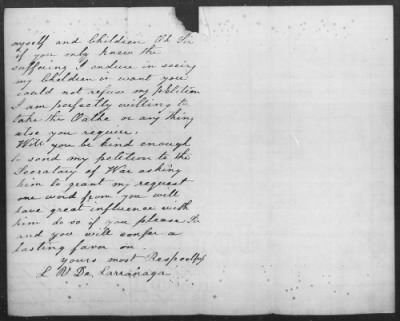 myself and Children Oh Sir
if you only knew the
suffering I endure in seeing
my Children in want you
could not refuse my Petition
I am perfectly willing to
take the Oathe or any thing
else you require.
Will you be kind enough
to send my petition to the
Secratary of War asking
him to grant my request
one word from you will
have great influence with
him do so if you please Sir
and you will confer a
lasting favor on.
yours most Respectfly
L V De Larrañaga